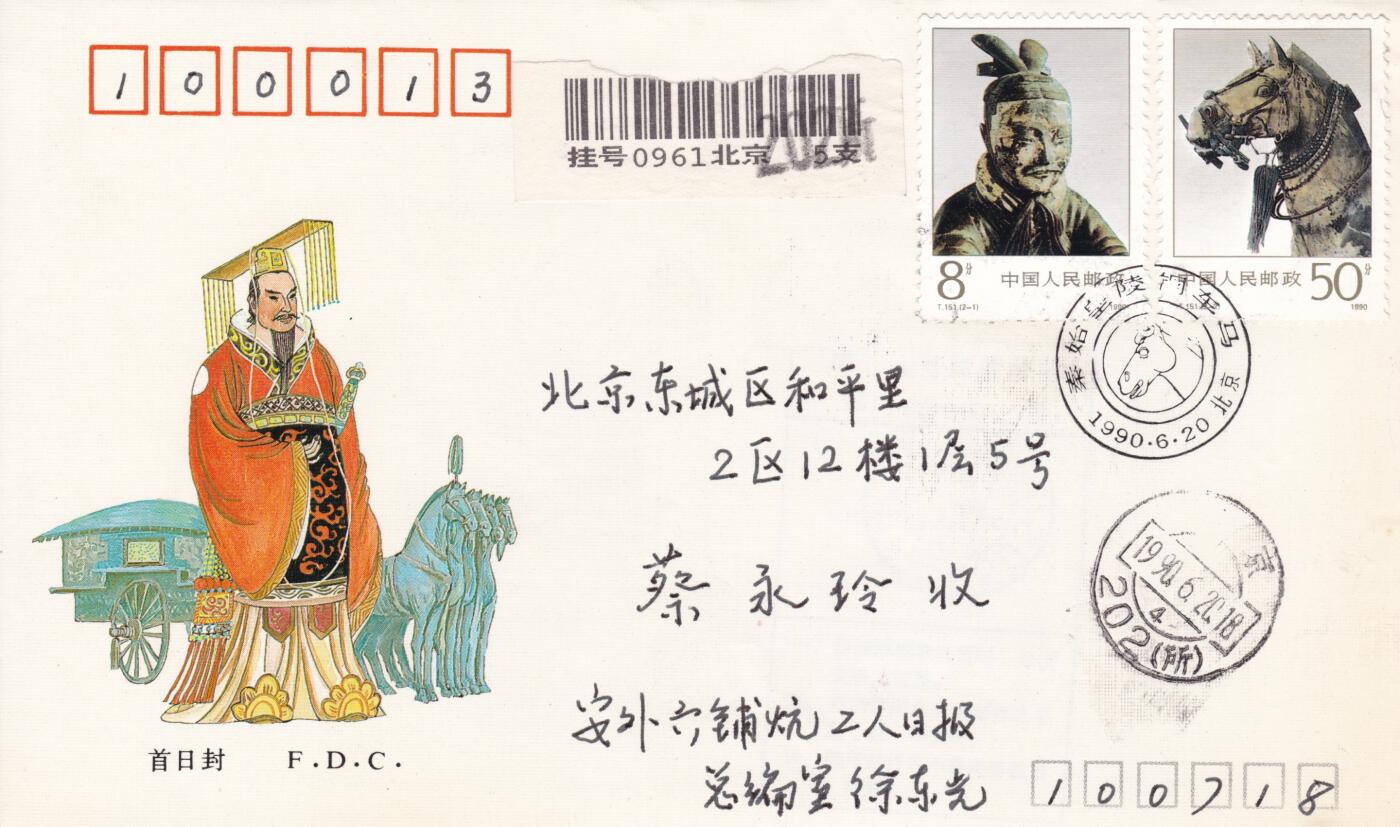 100013
挂号0961北京 5支
8分 中国人民邮政
T.151.(2-1) 1990
中国人民邮政 50分
T.151. 1990
秦始皇陵铜车马
1990.6.20 北京
北京东城区和平里
2区12楼1层5号
蔡永玲 收
京
1990.6.20.18
4
202(所)
安外六铺炕工人日报
总编室徐东光
首日封 F.D.C.
100718